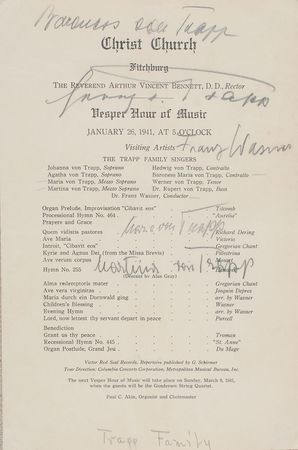 Baroness von Trapp
Christ Church
Fitchburg
The Reverend Arthur Vincent Bennett, D. D., Rector
Georg v. Trapp
Vesper Hour of Music
JANUARY 26, 1941, AT 5 O'CLOCK
Franz Wasner
Visiting Artists
THE TRAPP FAMILY SINGERS
Johanna von Trapp, Soprano Hedwig von Trapp, Contralto
Agatha von Trapp, Soprano Baroness Maria von Trapp, Contralto
Maria von Trapp, Mezzo Soprano Werner von Trapp, Tenor
Martina von Trapp, Mezzo Soprano Dr. Rupert von Trapp, Bass
Dr. Franz Wasner, Conductor
Organ Prelude, Improvisation "Cibavit eos" Titcomb
Processional Hymn No. 464 "Aurelia"
Prayers and Grace
Quem vidistis pastores Richard Dering
Ave Maria Victoria
Introit, "Cibavit eos" Gregorian Chant
Kyrie and Agnus Dei (from the Missa Brevis) Palestrina
Ave verum corpus Mozart
Hymn No. 255
(Descant by Alan Gray)
Martina von Trapp
Alma redemptoris mater Gregorian Chant
Ave vera virginitas Josquin Depres
Maria durch ein Dornwald ging arr. by Wasner
Children's Blessing arr. by Wasner
Evening Hymn arr. by Wasner
Lord, now lettest thy servant depart in peace Purcell
Benediction
Grant us thy peace Troman
Recessional Hymn No. 445 "St. Anne"
Organ Postlude, Grand Jeu Du Mage
Victor Red Seal Records, Repertoire published by G. Schirmer
Tour Direction: Columbia Concerts Corporation, Metropolitan Musical Bureau, Inc.
The next Vesper Hour of Music will take place on Sunday, March 9, 1941,
when the guests will be the Gordersen String Quartet.
Paul C. Akin, Organist and Choirmaster
Trapp Family